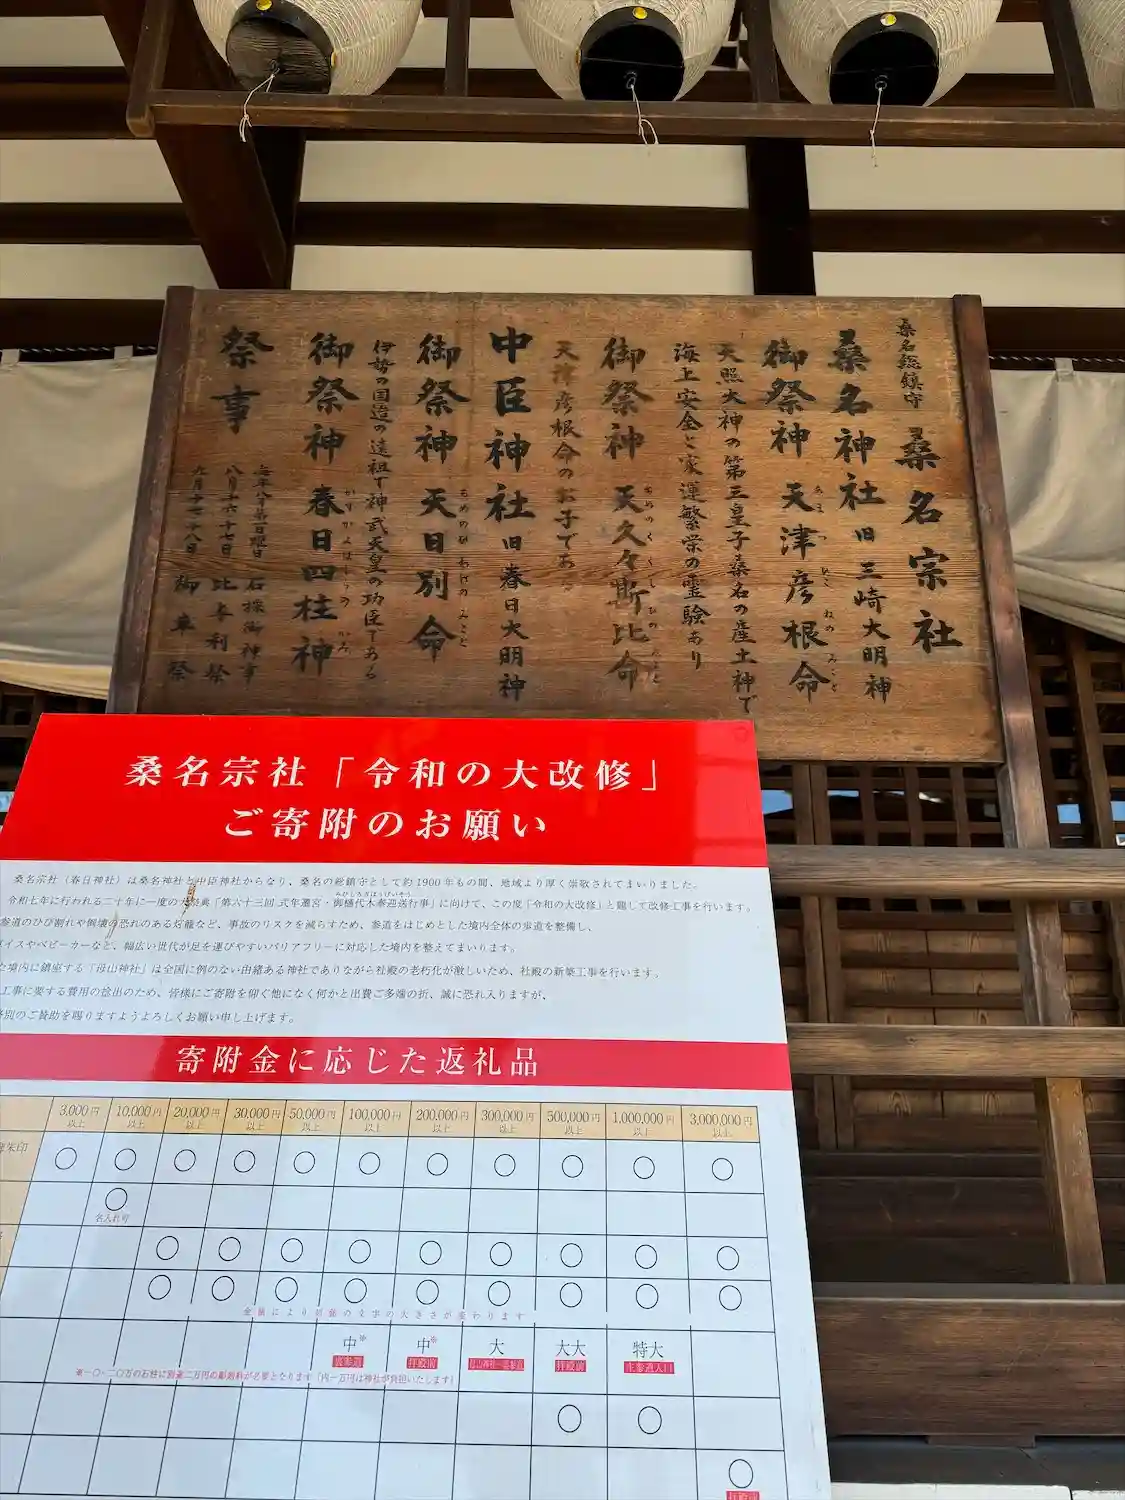 桑名総鎮守 桑名宗社
桑名神社 旧 三崎大明神
御祭神 天津彦根命
天照大神の第三皇子桑名の産土神で
海上安全と家運繁栄の霊験あり
御祭神 天久々斯比命
天津彦根命のお子である
中臣神社 旧 春日大明神
御祭神 天日別命
伊勢の国造の遠祖で神武天皇の功臣である
御祭神 春日四柱神
祭事
毎年八月第一日曜日 石採御神事
八月十六十七日 比与利祭
九月十七十八日 御車祭
桑名宗社「令和の大改修」
ご寄附のお願い
桑名宗社（春日神社）は桑名神社と中臣神社からなり、桑名の総鎮守として約1900年もの間、地域より厚く崇敬されてまいりました。
令和七年に行われる二十年に一度の大祭典「第六十三回 式年遷宮・御樋代木奉迎送行事」に向けて、この度「令和の大改修」と題して改修工事を行います。
参道のひび割れや倒壊の恐れのある灯籠など、事故のリスクを減らすため、参道をはじめとした境内全体の歩道を整備し、
イスやベビーカーなど、幅広い世代が足を運びやすいバリアフリーに対応した境内を整えてまいります。
た境内に鎮座する「母山神社」は全国に例のない由緒ある神社でありながら社殿の老朽化が激しいため、社殿の新築工事を行います。
工事に要する費用の捻出のため、皆様にご寄附を仰ぐ他になく何かと出費ご多端の折、誠に恐れ入りますが、
別のご賛助を賜りますようよろしくお願い申し上げます。
寄附金に応じた返礼品
3,000円以上 10,000円以上 20,000円以上 30,000円以上 50,000円以上 100,000円以上 200,000円以上 300,000円以上 500,000円以上 1,000,000円以上 3,000,000円以上
朱印 ○ ○ ○ ○ ○ ○ ○ ○ ○ ○ ○
○
名入れ可
○ ○ ○ ○ ○ ○ ○ ○ ○
○ ○ ○ ○ ○ ○ ○ ○ ○
金額により の文字の大きさが変わります
中※ 中※ 大 大大 特大
裏参道 拝殿前 母山神社・裏参道 拝殿前 主参道入口
※一〇・二〇万の石柱に別途二万円の彫刻料が必要となります（内一万円は神社が負担いたします）
○ ○
○
拝殿前